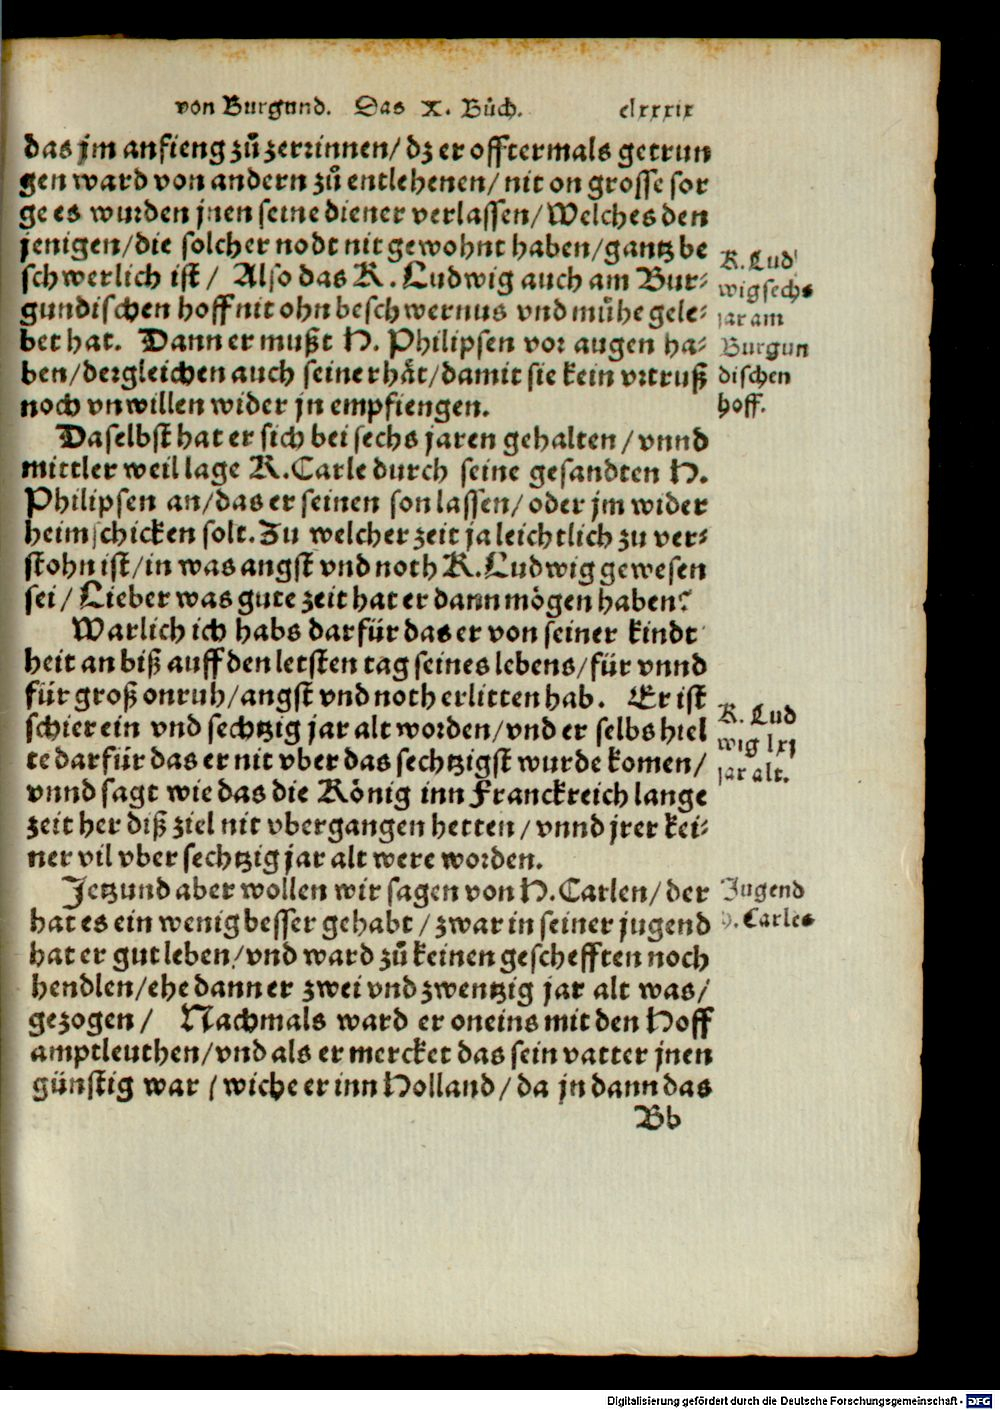 von Burgund. Das X. Bůch. clxxxix
das jm anfieng zů zerrinnen/ dz er offtermals getrun
gen ward von andern zů entlehenen/ nit on grosse sor
ge es wurden jnen seine diener verlassen/ Welches den
jenigen/ die solcher nodt nit gewohnt haben/ gantz be
schwerlich ist/ Also das K. Ludwig auch am Bur⸗
gundischen hoff nit ohn beschwernus vnd mühe gele⸗
bet hat. Dann er mußt H. Philipsen vor augen ha⸗
ben/ dergleichen auch seiner håt/ damit sie kein vrtruß
noch vnwillen wider jn empfiengen.
K. Lud
wig sechs
jar am
Burgun
dischen
hoff.
Daselbst hat er sich bei sechs jaren gehalten/ vnnd
mittler weil lage K. Carle durch seine gesandten H.
Philipsen an/ das er seinen son lassen/ oder jm wider
heim schicken solt. Zu welcher zeit ja leichtlich zu ver⸗
stohn ist/ in was angst vnd noth K. Ludwig gewesen
sei/ Lieber was gute zeit hat er dann mögen haben?
Warlich ich habs darfür das er von seiner kindt
heit an biß auff den letsten tag seines lebens/ für vnnd
für groß onruh/ angst vnd noth erlitten hab. Er ist
schier ein vnd sechtzig jar alt worden/ vnd er selbs hiel
te darfür das er nit vber das sechtzigst wurde komen/
vnnd sagt wie das die König inn Franckreich lange
zeit her diß ziel nit vbergangen hetten/ vnnd jrer kei⸗
ner vil vber sechtzig jar alt were worden.
K. Lud
wig lxj
jar alt.
Jetzund aber wollen wir sagen von H. Carlen/ der
hat es ein wenig besser gehabt/ zwar in seiner jugend
hat er gut leben/ vnd ward zů keinen geschefften noch
hendlen/ ehe dann er zwei vnd zwentzig jar alt was/
gezogen/ Nachmals ward er oneins mit den Hoff
amptleuthen/ vnd als er mercket das sein vatter jnen
günstig war/ wiche er inn Holland/ da jn dann das
Jugend
H. Carles
Bb
Digitalisierung gefördert durch die Deutsche Forschungsgemeinschaft - DFG